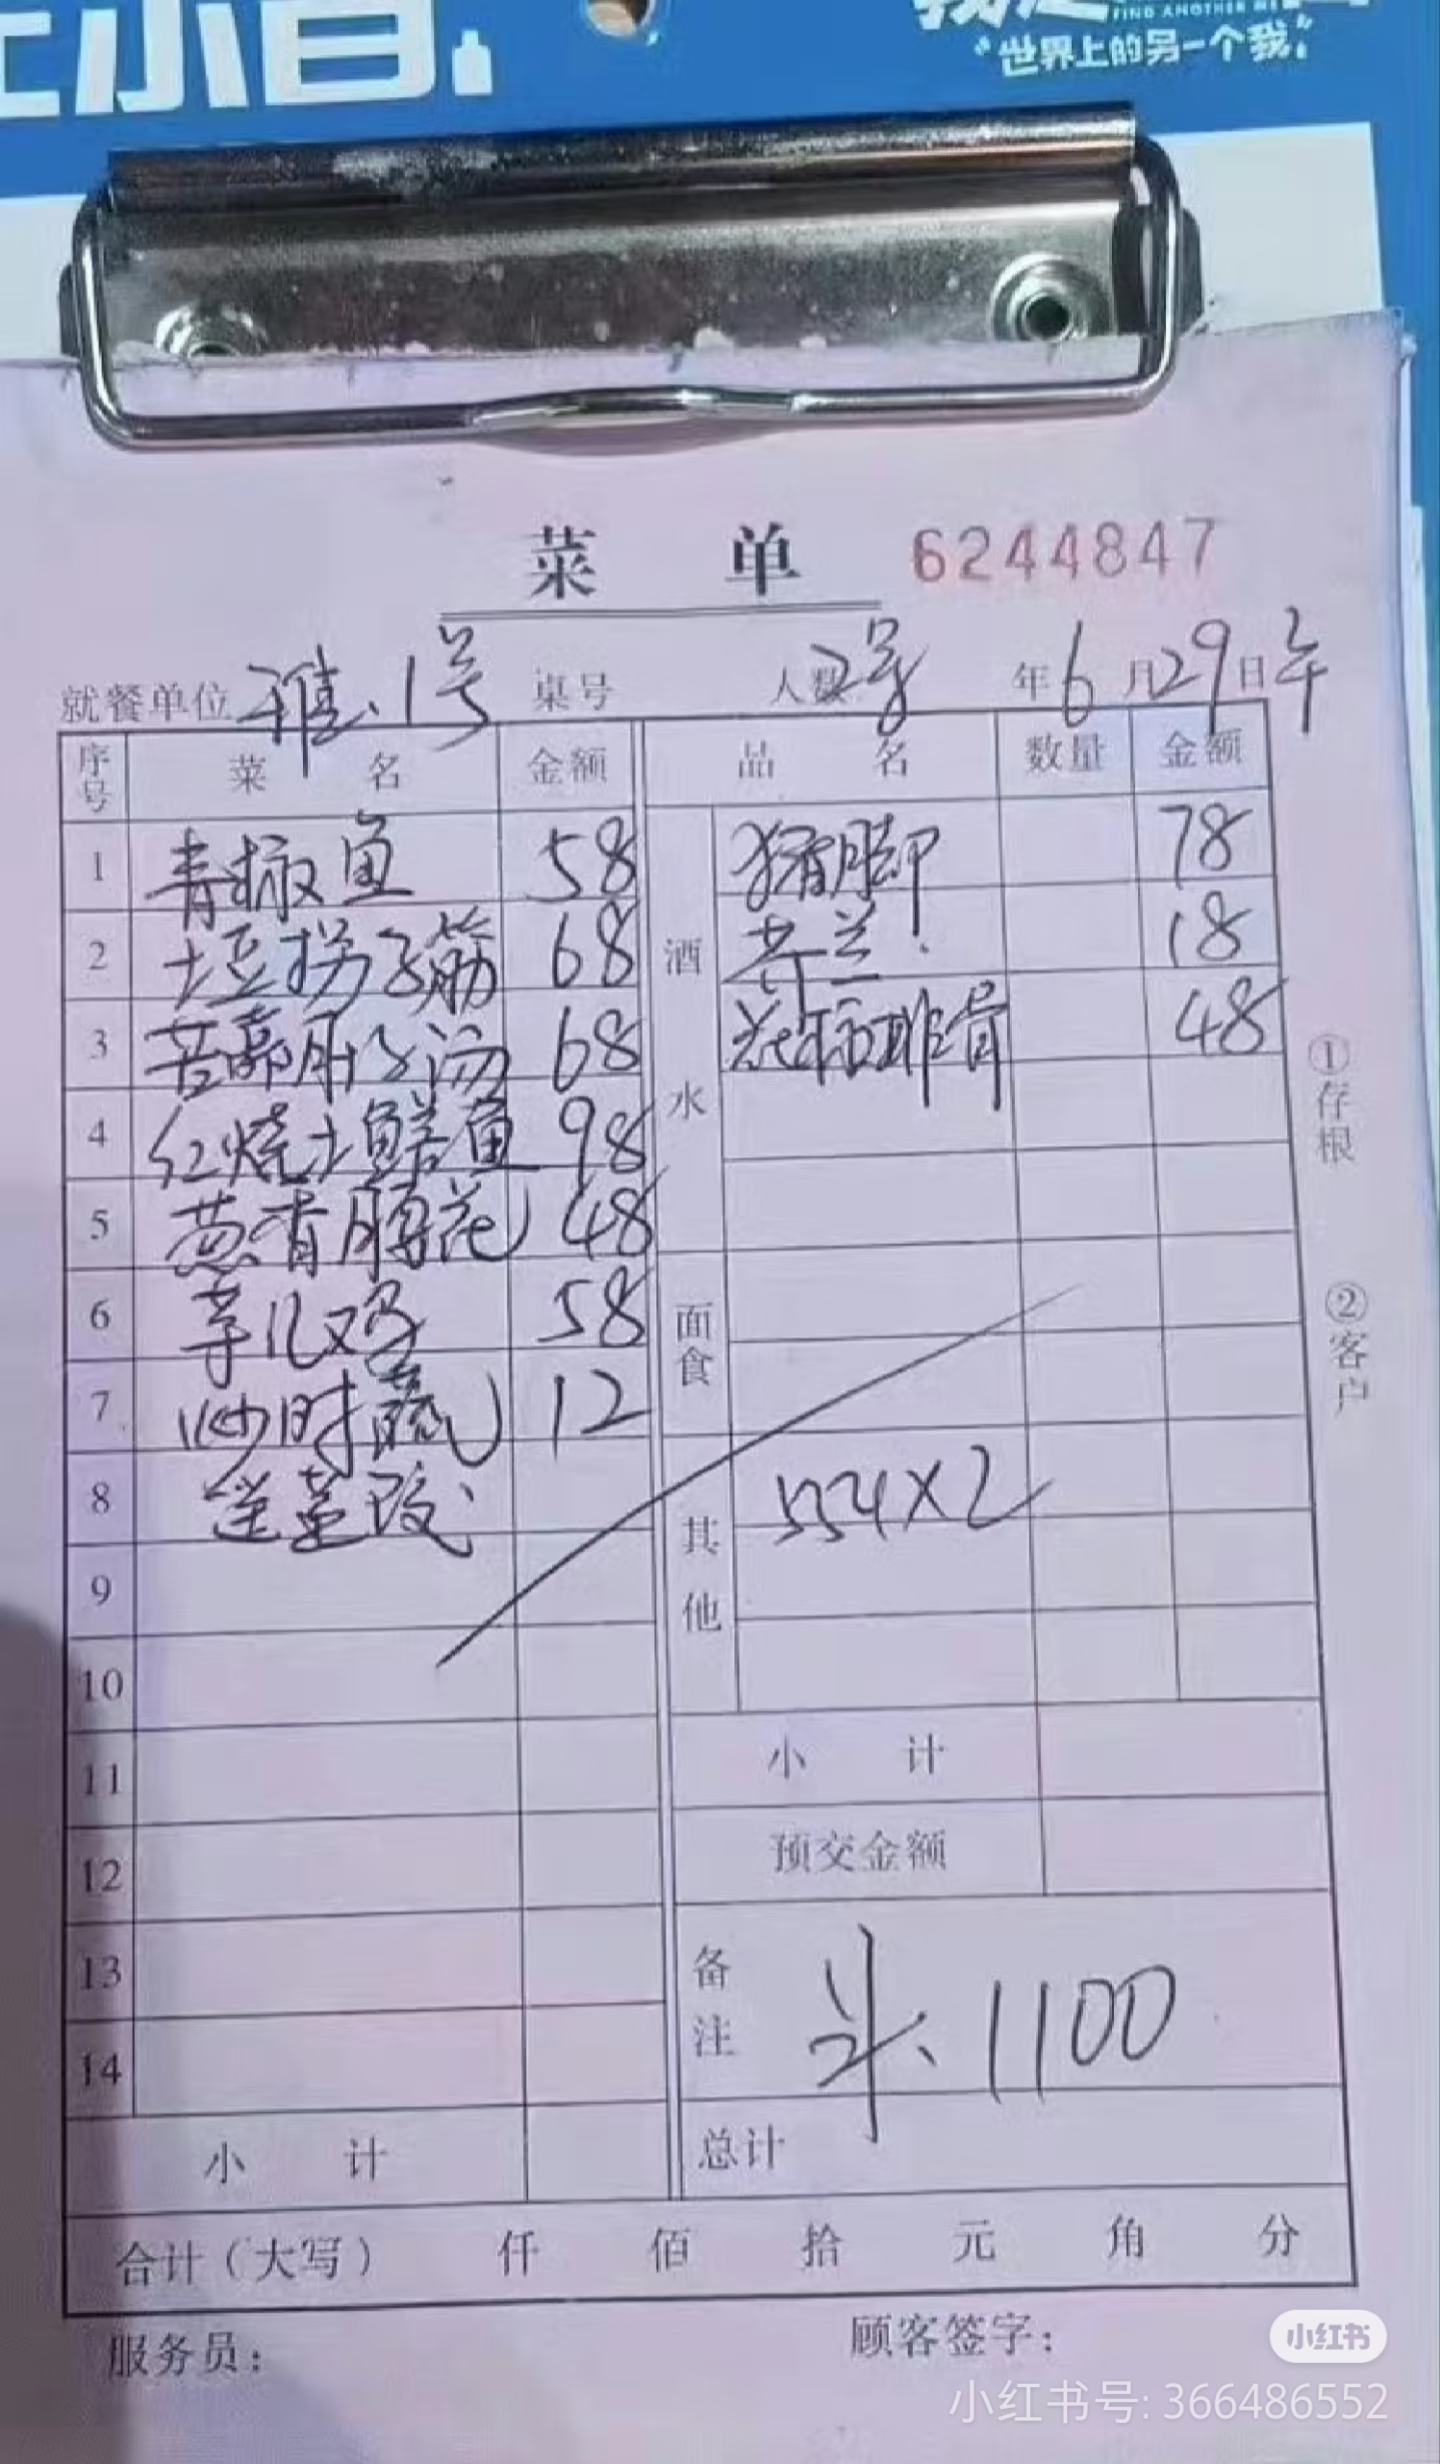 小白
FIND ANOTHER ME
“世界上的另一个我”
菜 单 6244847
就餐单位 雅、1号 桌号 人数 2号 年 6 月 29 日 午
序号 菜 名 金额
1 青椒鱼 58
2 土豆拐子筋 68
3 苦藠肚子汤 68
4 红烧土鲜鱼 98
5 葱香腰花 48
6 芋儿鸡 58
7 炒时蔬 12
8
9
10
11
12
13
14
小 计
品 名 数量 金额
酒水
猪脚 78
芥兰 18
花椒排骨 48
面食
其他
554×2
小 计
预交金额
备注 斗、1100
总计
合计（大写） 仟 佰 拾 元 角 分
服务员： 顾客签字：
①存根 ②客户
小红书
小红书号: 366486552